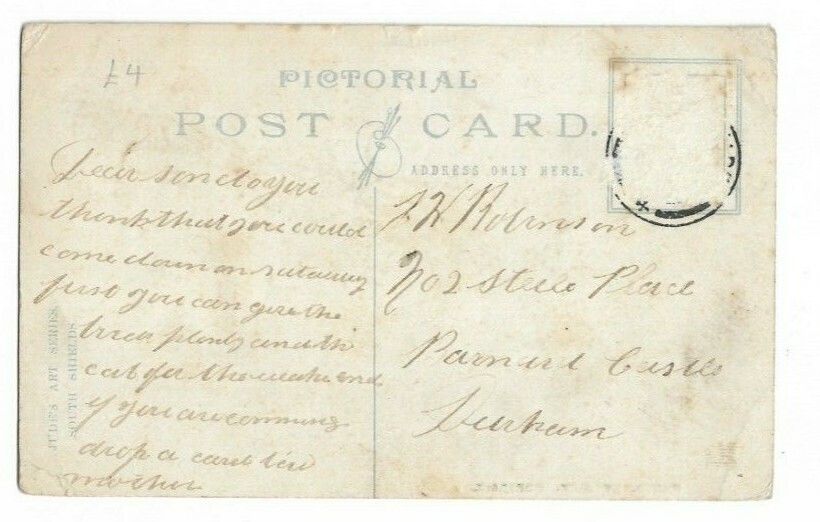 £4
PICTORIAL
POST CARD.
ADDRESS ONLY HERE.
Dear son do you
think that you could
come down on
just you can give the
plenty and the
cat for the weekend
if you are comming
drop a card
mother
J W Robinson
No 2 Steele Place
Barnard Castle
Durham
JUDE'S ART SERIES.
SOUTH SHIELDS